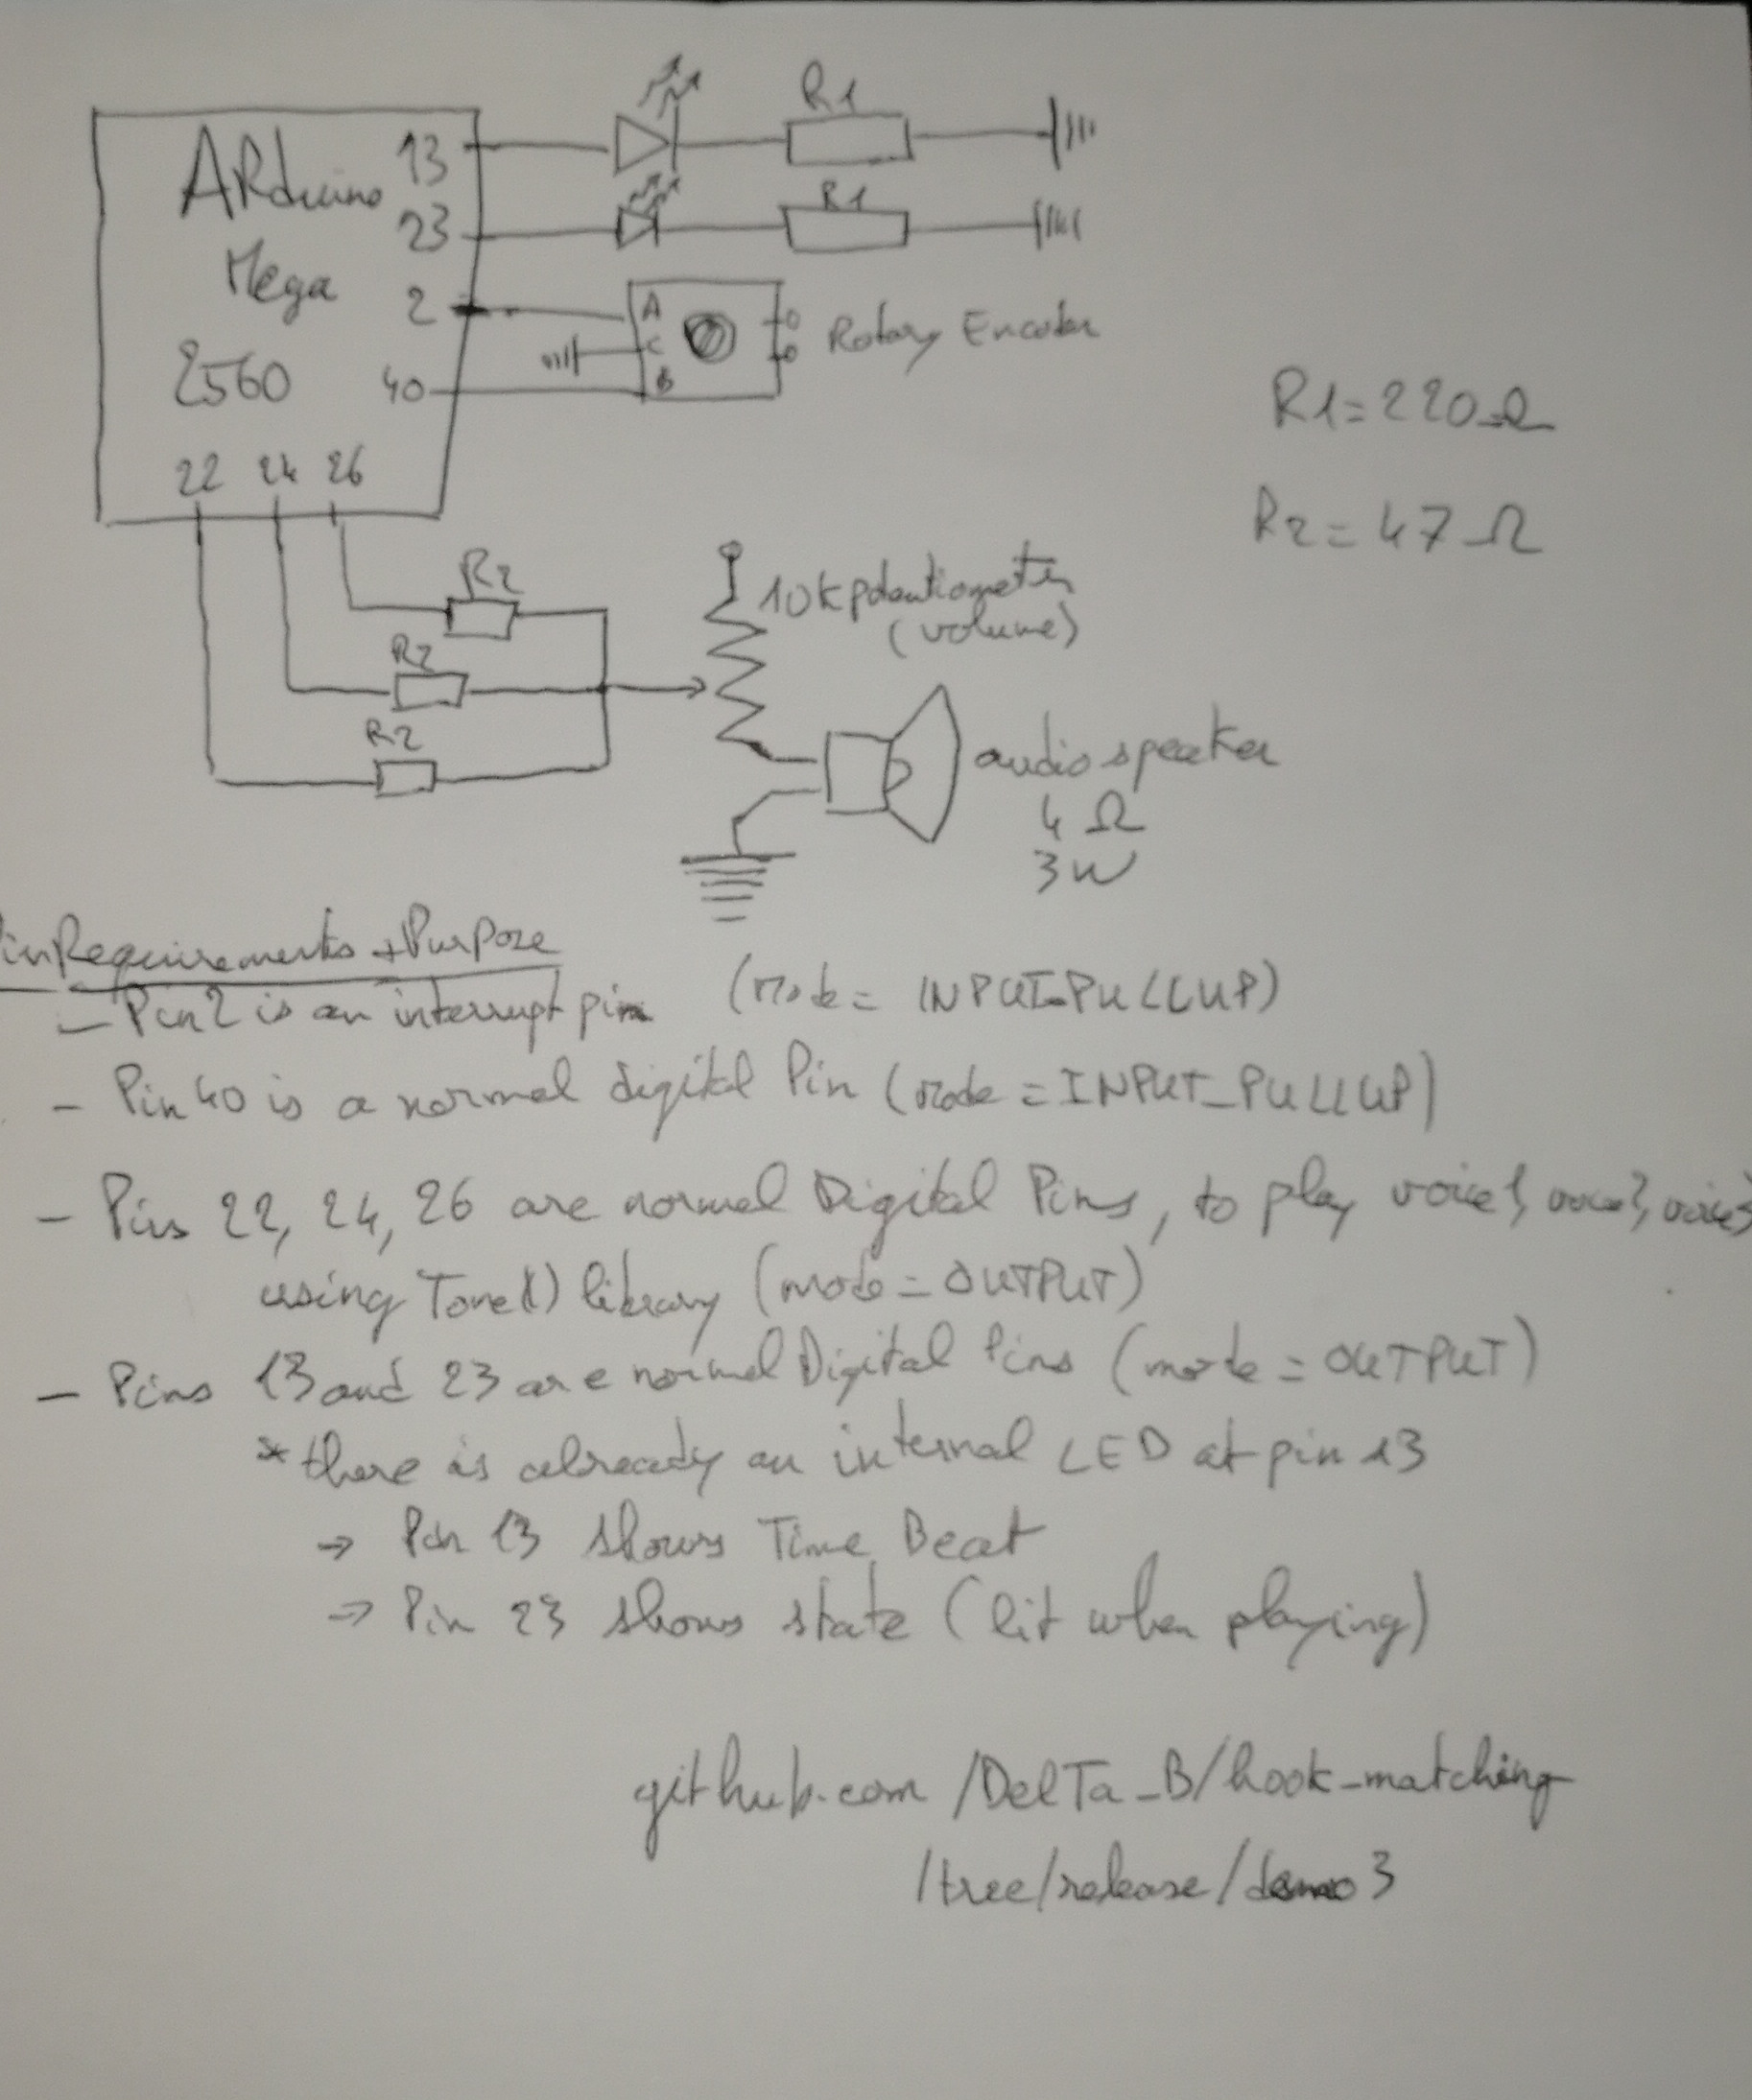 R1
ARduino 13
R1
23
Mega
2
A
C
B
Rotary Encoder
2560
40
R1=220Ω
22 24 26
R2=47Ω
R2
10k potentiometer
(volume)
R2
R2
audio speaker
4 Ω
3W
inRequirements + Purpose
- Pin 2 is an interrupt pin (Mode = INPUT_PULLUP)
- Pin 40 is a normal digital Pin (Mode = INPUT_PULLUP)
- Pins 22, 24, 26 are normal Digital Pins, to play voice1, voice2, voice3
using Tone() library (mode = OUTPUT)
- Pins 13 and 23 are normal Digital Pins (mode = OUTPUT)
* there is already an internal LED at pin 13
→ Pin 13 shows Time Beat
→ Pin 23 shows state (lit when playing)
github.com/DelTa_B/hook_matching
/tree/release/demo3